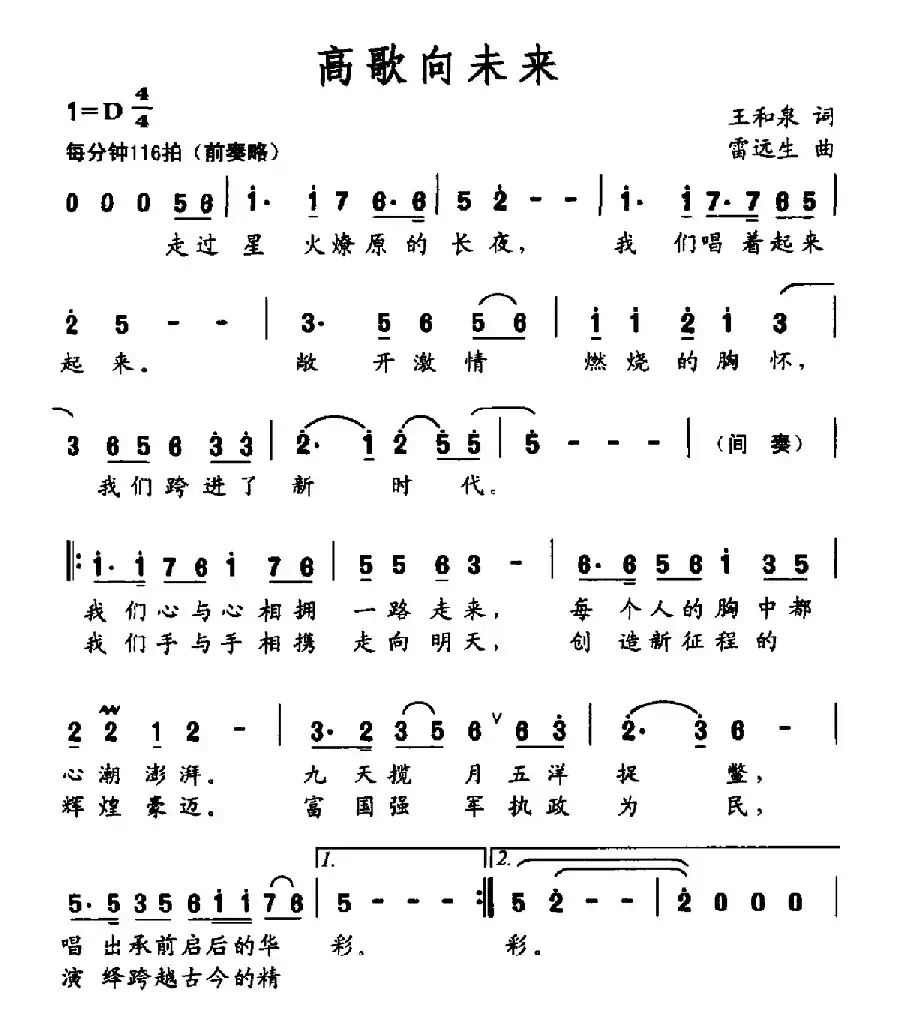 高歌向未来
1=D 4/4
王和泉 词
每分钟116拍（前奏略）
雷远生 曲
0 0 0 5 6 | 1· 1 7 6· 6 | 5 2 - - | 1· 1 7· 7 6 5 |
走过星 火燎原的长夜， 我 们唱着起来
2 5 - - | 3· 5 6 5 6 | 1 1 2 1 3 |
起来。 敞 开激情 燃烧的胸怀，
3 6 5 6 3 3 | 2· 1 2 5 5 | 5 - - - | （间 奏）
我们跨进了 新 时 代。
|: 1· 1 7 6 1 7 6 | 5 5 6 3 - | 6· 6 5 6 1 3 5 |
我 们心与心相拥 一路走来， 每 个人的胸中都
我 们手与手相携 走向明天， 创 造新征程的
2 2 1 2 - | 3· 2 3 5 6 ∨ 6 3 | 2· 3 6 - |
心潮澎湃。 九 天揽 月五洋 捉 鳖，
辉煌豪迈。 富 国强 军执政 为 民，
1. 2.
5· 5 3 5 6 1 1 7 6 | 5 - - - :| 5 2 - - | 2 0 0 0 |
唱 出承前启后的华 彩。 彩。
演 绎跨越古今的精